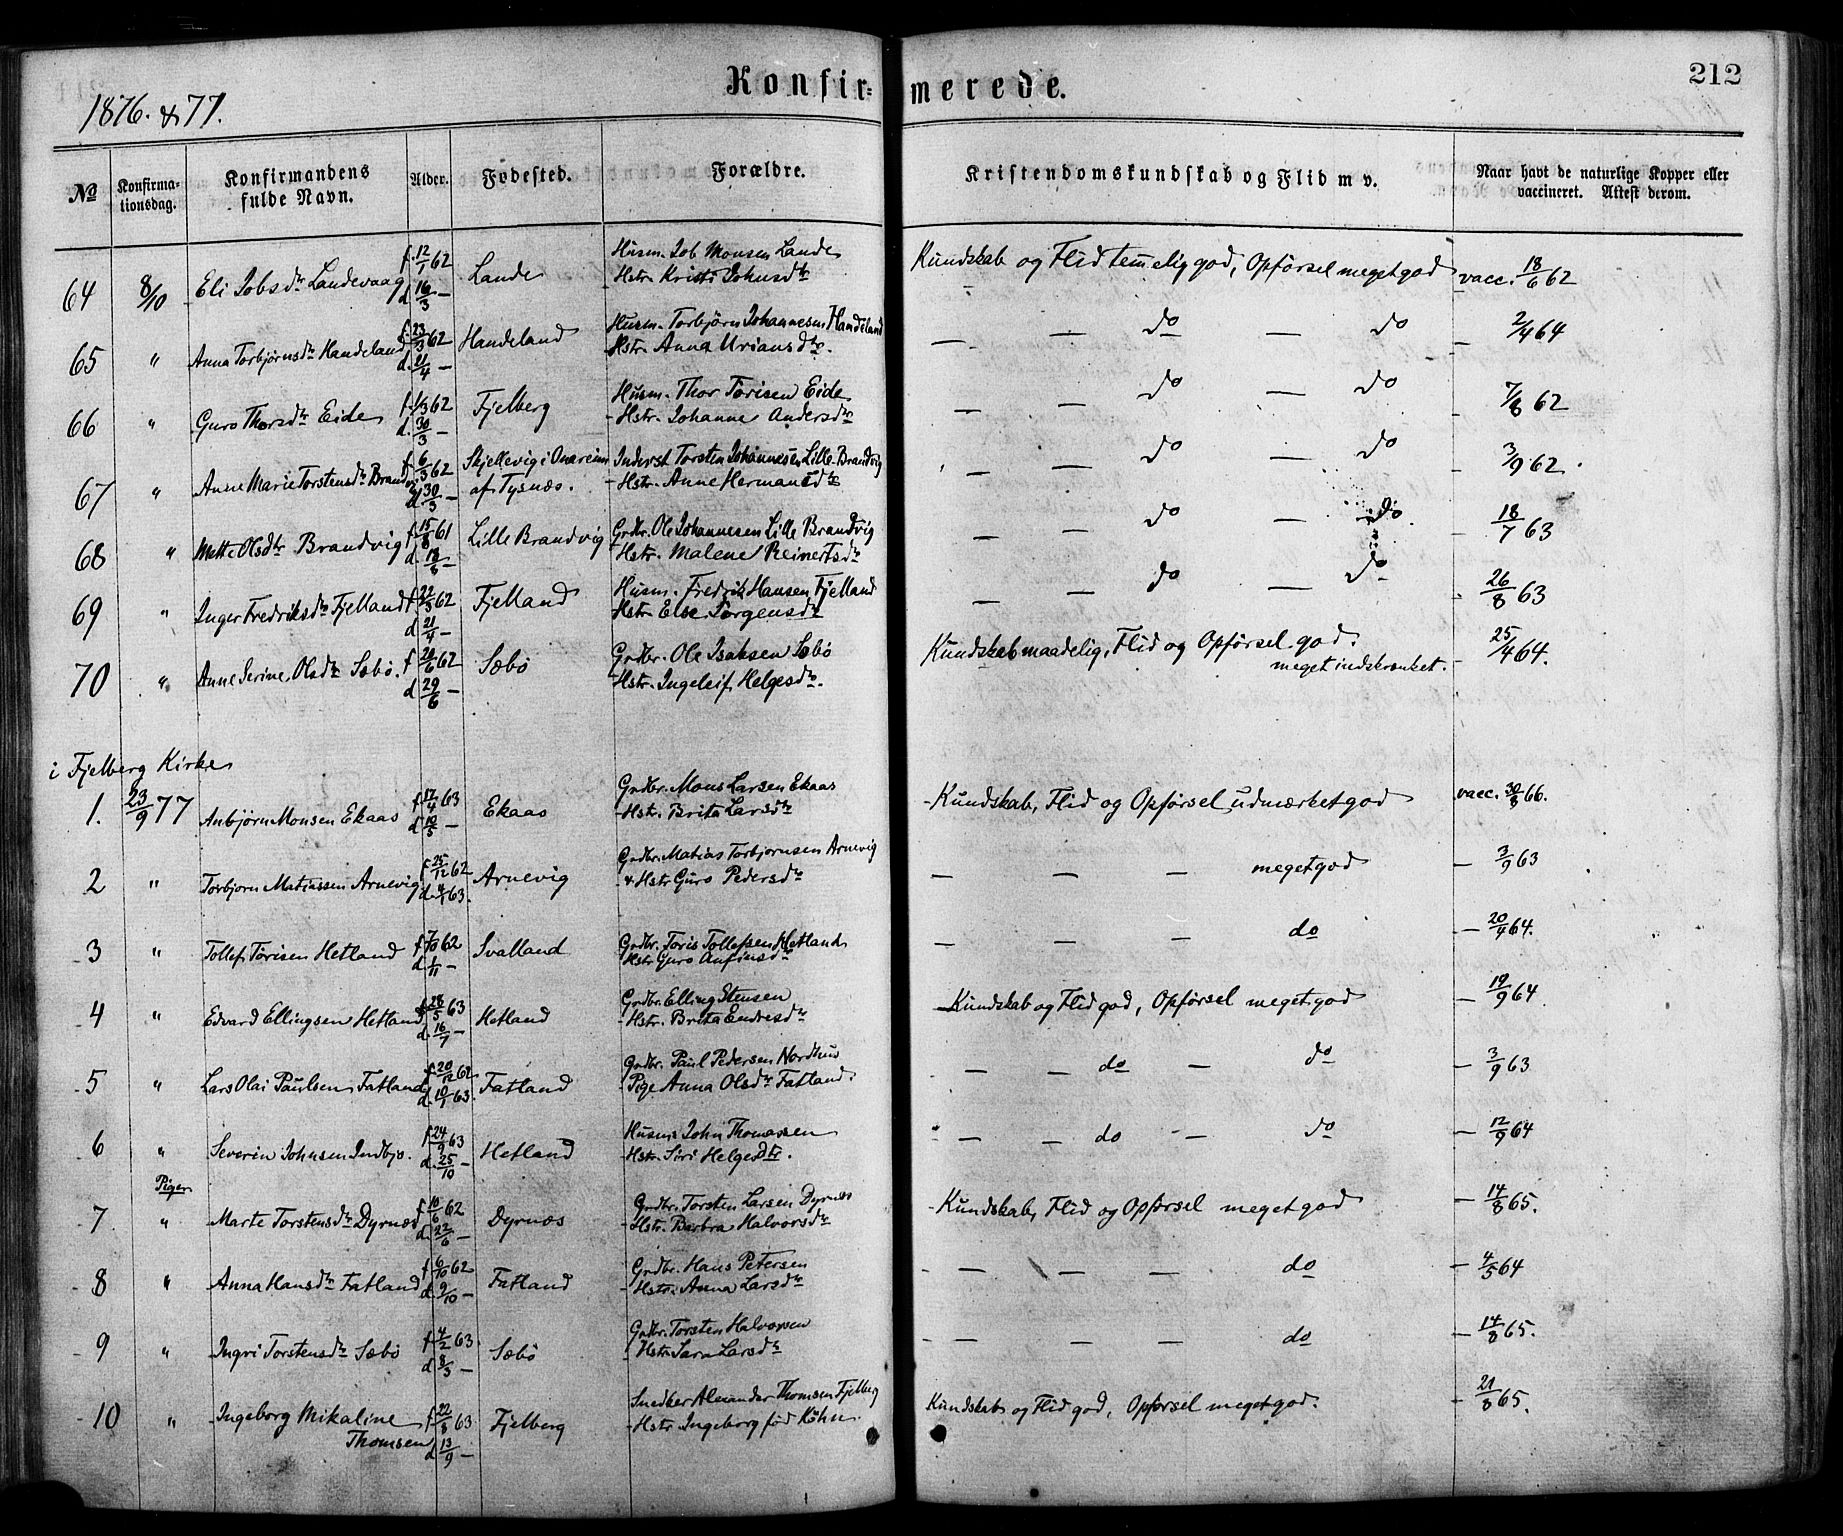 Konfir= merede.
212
1876. & 77.
No Konfirma-tionsdag. Konfirmandens fulde Navn. Alder. Fødested. Forældre. Kristendomskundskab og Flid m v. Naar havt de naturlige Kopper eller vaccineret. Attest derom.
64 8/10 Eli Jobsdr Landevaag f. 12/1 62 d. 16/3 — Lande Husm. Job Monsen Lande Hstr. Kristi Johnsdr Kundskab og Flid temmelig god, Opførsel meget god vacc. 18/6 62
65 " Anna Torbjørnsdr Handeland f. 23/3 62 d. 21/4 — Handeland Husm. Torbjørn Johannesen Handeland Hstr. Anna Uriansdr. — — do — do — 2/4 64
66 " Guro Thorsdr Eide f. 1/3 62 d. 30/3 — Fjelberg Husm. Thor Torisen Eide Hstr. Johanne Andersdr — — do — do — 7/8 62
67 " Anne Marie Torstensdr Brandvig f. 6/3 62 d. 30/3 — Skjellevig i Onareim af Tysnæs. Inderst Torsten Johannesen Lille Brandvig Hstr. Anne Hermansdr — — do — do — 3/9 62.
68 " Mette Olsdtr Brandvig f. 15/8 61 d. 18/8 — Lille Brandvig Grdbr. Ole Johannesen Lille Brandvig Hstr. Malene Reinertsdr — — do — do. — 18/7 63
69 " Inger Fredriksdr Fjelland f. 22/3 62 d. 21/4 — Fjelland Husm. Fredrik Hansen Fjelland Hstr. Else Jørgensdr — — do — do — 26/8 63
70 " Anne Serine Olsdr Sæbø. f. 20/6 62 d. 29/6 — Sæbö Grdbr. Ole Isaksen Sæbö Hstr. Ingeleif Helgesdr. Kundskab maadelig, Flid og Opførsel god. meget indskrænket. — 25/4 64.
i Fjelberg Kirke
1. 23/9 77 Anbjørn Monsen Ekaas f. 17/4 63 d. 10/5 — Ekaas Grdbr. Mons Larsen Ekaas Hstr. Brita Larsdr Kundskab, Flid og Opførsel udmærket god vacc. 30/8 66.
2 " Torbjørn Matiassen Arnevig f. 25/12 62 d. 4/1 63. Arnevig Grdbr. Matias Torbjørnsen Arnevig & Hstr Guro Pedersdr — — — meget god — 3/9 63
3 " Tollef Torisen Hetland f. 7/10 62 d. 1/11 — Svalland Grdbr. Toris Tollefsen Hetland Hstr Guro Anfinsdr — — — do — 20/4 64.
4 " Edvard Ellingsen Hetland f. 28/5 63 d. 16/7 — Hetland Grdbr. Elling Stensen Hstr. Brita Endresdr Kundskab og Flid god, Opførsel meget god — 19/9 64
5 " Lars Olai Paulsen Fatland f. 20/12 62 d. 10/1 63. Fatland Grdbr. Paul Pedersen Nordhus Pige Anna Olsdr Fatland. — — do — do — 3/9 63
6 " Severin Johnsen Indbjo. f. 24/9 63 d. 25/10 — Hetland Husm. John Thomassen Hstr. Siri Helgesdtr. — — do — do — 12/9 64
Piger
7 " Marte Torstensdr Dyrnæs f. 10/6 62 d. 22/6 — Dyrnæs Grdbr. Torsten Larsen Dyrnæs Hstr. Barbra Halvorsdr Kundskab, Flid og Opførsel meget god — 14/8 65.
8 " Anna Hansdr Fatland f. 6/10 62 d. 9/10 — Fatland Grdbr. Hans Petersen Hstr. Anna Larsdr — — — do — 4/5 64
9 " Ingri Torstensdr Sæbö f. 4/2 63 d. 8/3 — Sæbö Grdbr. Torsten Halvorsen Hstr. Sara Larsdr — — — do — 14/8 65.
10 " Ingeborg Mikaline Thomsen f. 22/8 63 d. 13/9 — Fjelberg Snedker Alexander Thomsen Fjelberg Hstr. Ingeborg fød Köhn Kundskab og Flid god, Opførsel meget god. — 21/8 65.